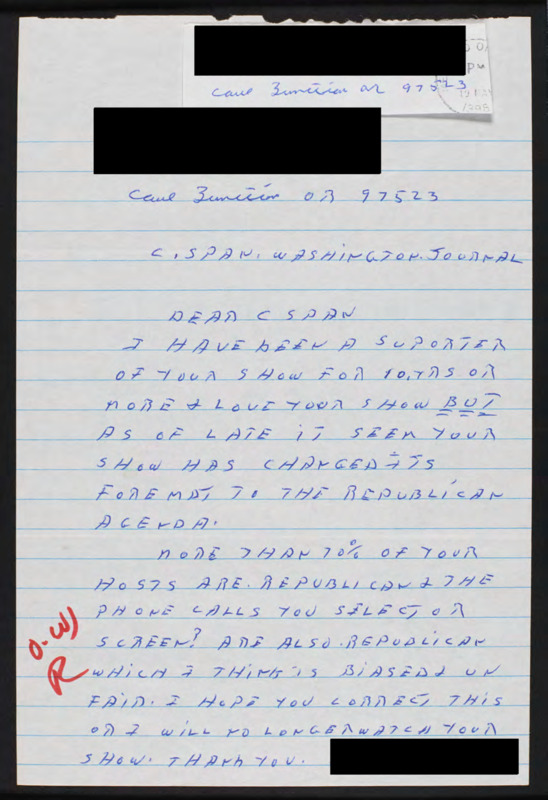 Cave Junction OR 97523
Cave Junction OR 97523
C. SPAN. WASHINGTON. JOURNAL
DEAR C SPAN
I HAVE BEEN A SUPORTER
OF YOUR SHOW FOR 10, YRS OR
MORE & LOVE YOUR SHOW BUT
AS OF LATE IT SEEM YOUR
SHOW HAS CHANGED ITS
FOREMAT TO THE REPUBLICAN
AGENDA.
MORE THAN 70% OF YOUR
HOSTS ARE. REPUBLICAN & THE
PHONE CALLS YOU SELECT OR
SCREEN? ARE ALSO. REPUBLICAN
WHICH I THINK IS BIASED & UN
FAIR. I HOPE YOU CORRECT THIS
OR I WILL NO LONGER WATCH YOUR
SHOW. THANK YOU.
O-WJ
R